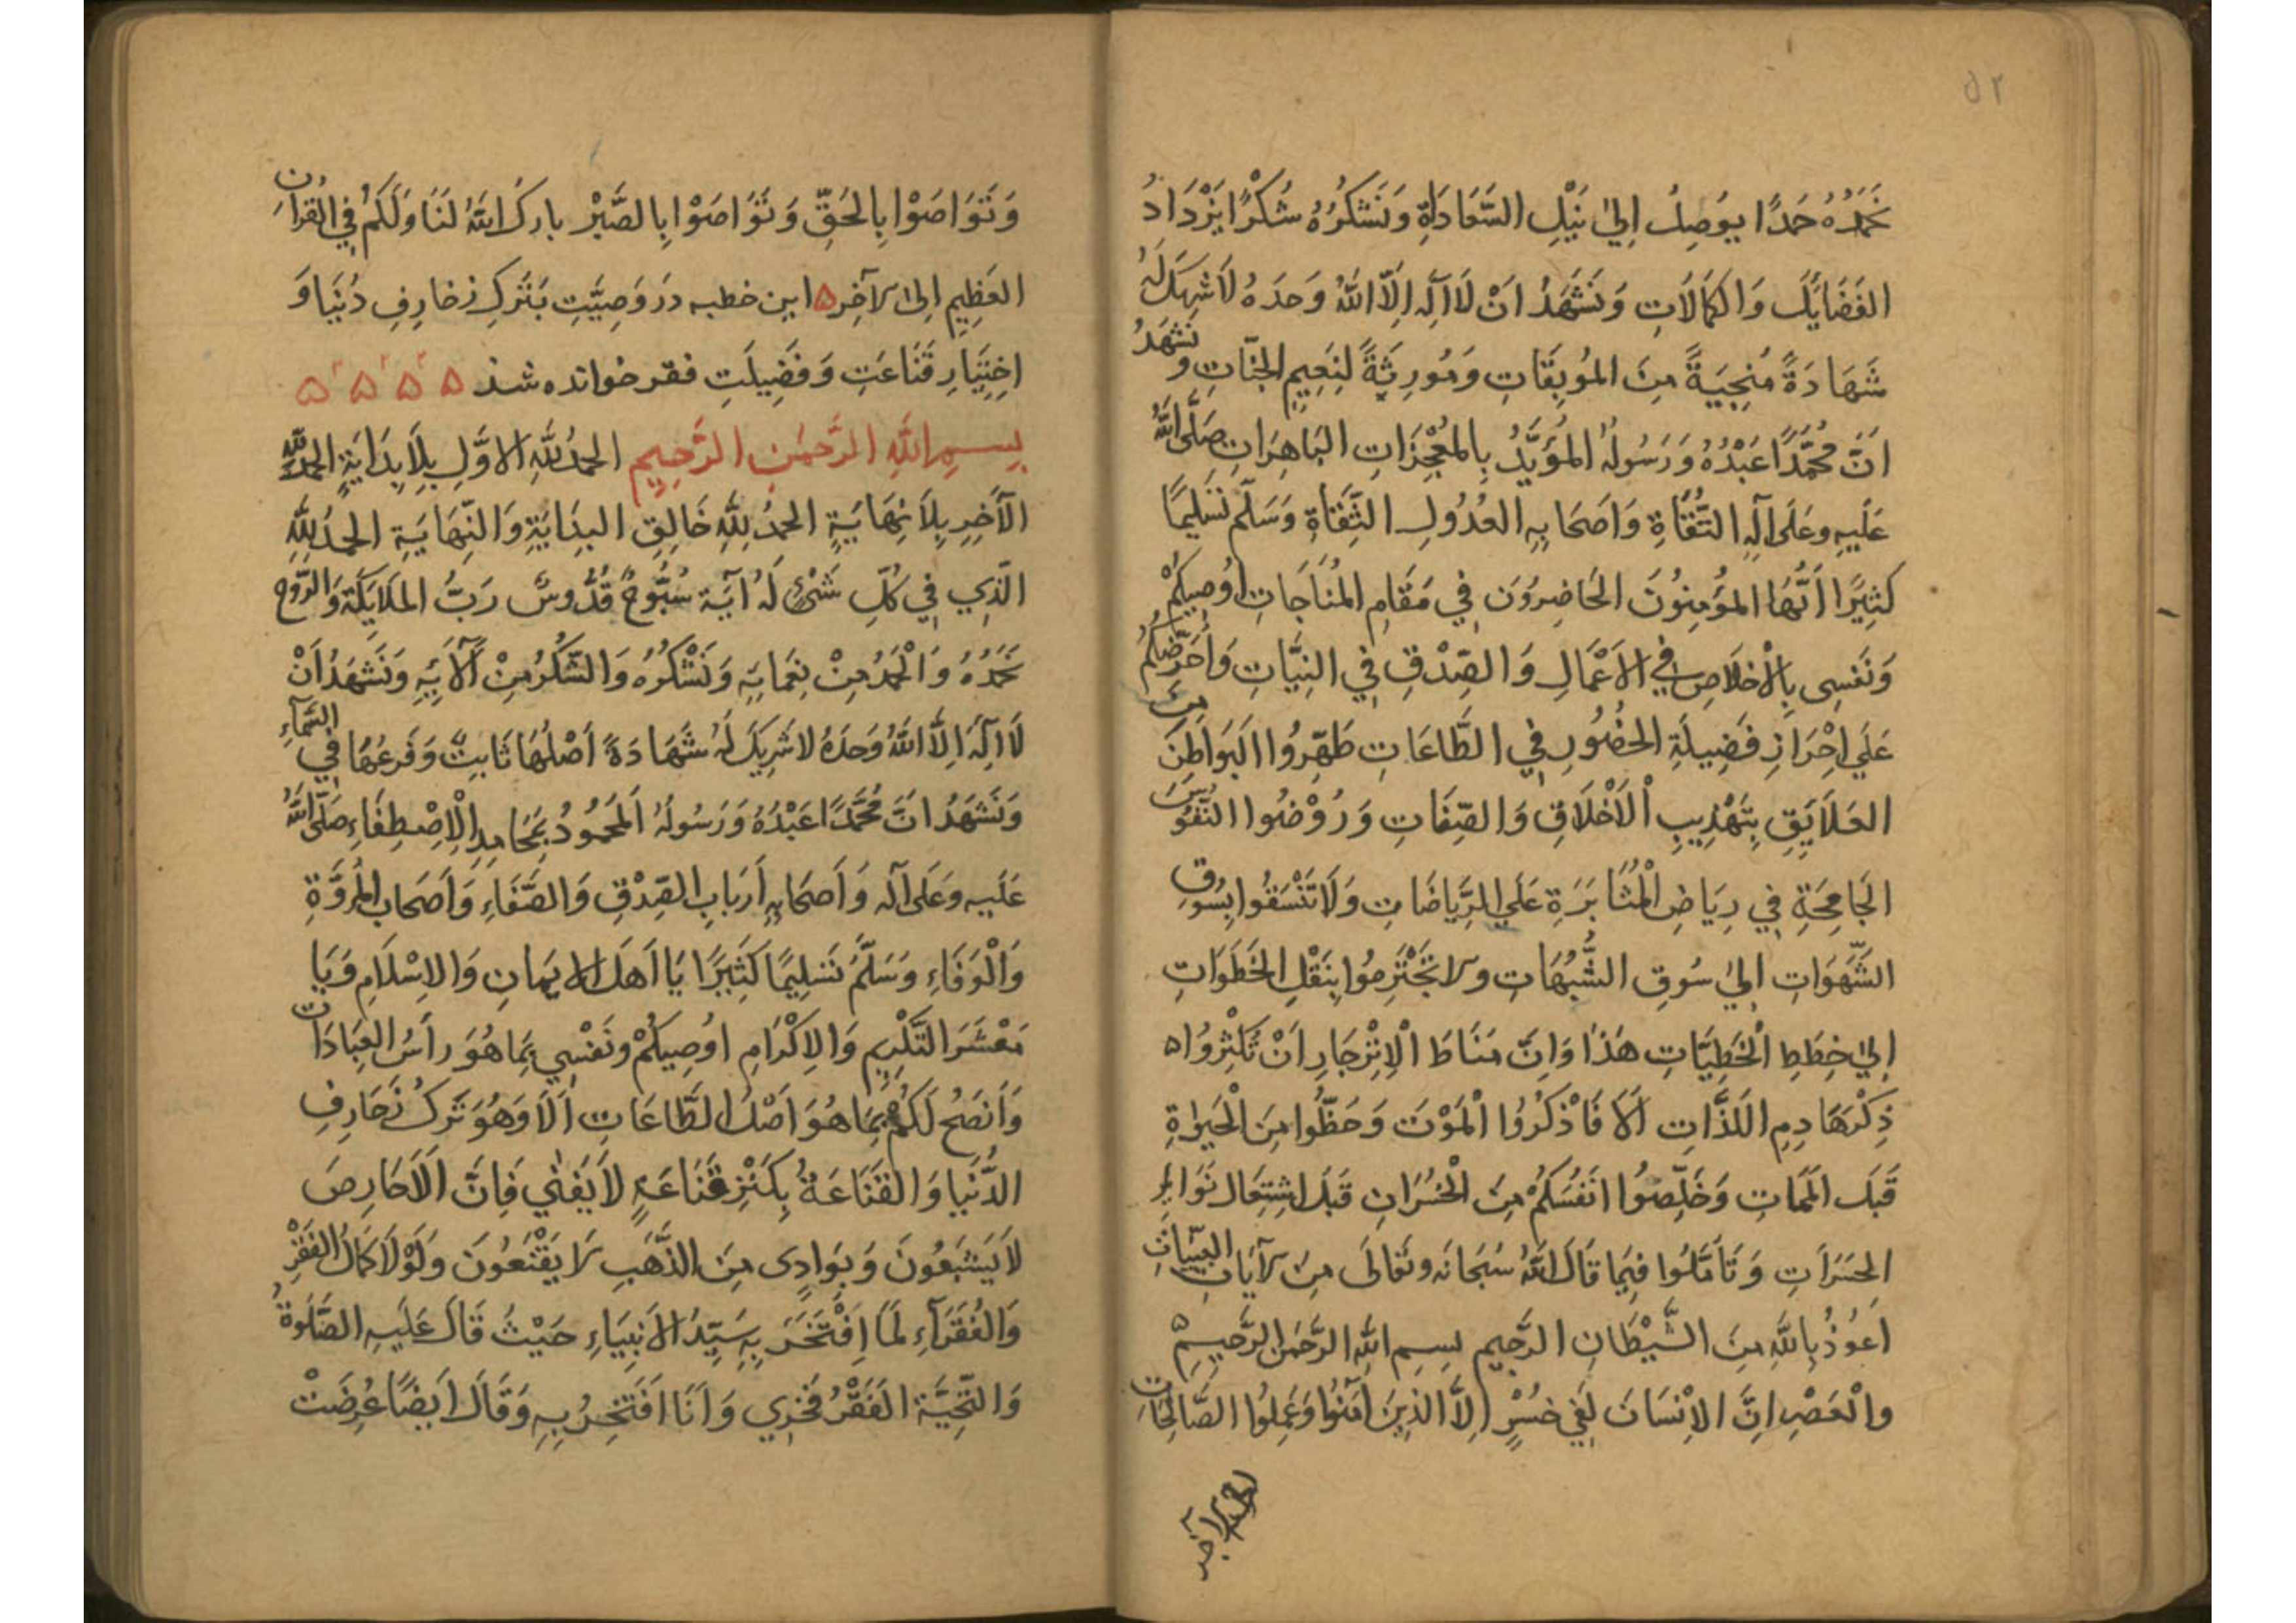 ٥٢
نَحْمَدُهُ حَمْدًا يُوصِلُ اِلٰى نَيْلِ السَّعَادَاةِ وَنَشْكُرُهُ شُكْرًا يَزْدَادُ
الفَضَايِلَ وَالكَمَالَاتِ وَنَشْهَدُ اَنْ لَا اِلٰهَ اِلَّا اللّٰهُ وَحدَهُ لَا شَرِيكَ لَهُ
شَهَادَةً مُنْجِيَةً مِنَ المُوبِقَاتِ وَمُورِثَةً لِنَعِيمِ الجَنَّاتِ وَنَشْهَدُ
اَنَّ مُحَمَّدًا عَبْدُهُ وَرَسُولُهُ المُؤَيَّدُ بِالمُعْجِزَاتِ البَاهِرَاتِ صَلَّى اللّٰهُ
عَلَيهِ وعَلَى آلِهِ التُّقَاةِ وَاَصحَابِهِ العُدُولِ الثِّقَاةِ وَسَلَّمَ تَسْلِيمًا
كَثِيرًا اَيُّهَا المُؤْمِنُونَ الحَاضِرُونَ فِي مَقَامِ المُنَاجَاتِ اُوصِيكُمْ
وَنَفسِى بِالْاِخلَاصِ فِي الاَعْمَالِ وَالصِّدْقِ فِي النِيَّاتِ وَاُحَرِّضُكُمْ
عَلَي اِحْرَازِ فَضِيلَةِ الحُضُورِ فِي الطَّاعَاتِ طَهِّرُوا البَوَاطِنَ مِنَ
العَلَايِقِ بِتَهْذِيبِ الْاَخْلَاقِ وَالصِّفَاتِ وَرُوْضُوا النُّفُوسَ
الجَامِحَةِ فِي رِيَاضِ الْمُثَابَرَةِ عَلَي الرِّيَاضَاتِ وَلَا تَنْسَقُوا بِسُوقِ
الشَّهَوَاتِ اِلٰى سُوقِ الشُّبُهَاتِ ولا تَجْتَرِمُوا بِنَقْلِ الخَطَوَاتِ
اِلٰى خِطَطِ الْخَطِيَّاتِ هَذَا وَاِنَّ مَنَاطَ الْاِنْزِجَارِ اَنْ تُكْثِرُوا ۵
ذِكْرَ هَادِمِ اللَذَّاتِ اَلَا فَاذْكُرُوُا الْمَوْتَ وَحَظُّوا مِنَ الْحَيٰوةِ
قَبلَ المَمَاتِ وَخَلِّصُوا اَنفُسَكُمْ مِنَ الْخُسْرَانِ قَبلَ اشتِعَالِ نَوَايِرِ
الحَسَرَاتِ وَتَاَمَّلُوا فِيمَا قَالَ اللّٰهُ سُبحَانَه وتَعَالَى مِنَ الآيَاتِ البَيِّنَاتِ
اَعُوذُ بِاللّٰهِ مِنَ الشَّيْطَانِ الرَّجِيمِ بِسمِ اللّٰهِ الرَّحمٰنِ الرَّحِيمِ ۵
والْعَصْرِ اِنَّ الاِنْسَانَ لَفِي خُسْرٍ اِلَّا الذِينَ اٰمَنُوا وَعَمِلُوا الصَّالِحَاتِ
وَتَوَاصَوْا بِالحَقِّ وَتَوَاصَوْا بِالصَّبْرِ بارك اللّٰهُ لَنَا وَلَكُمْ فِي القُرآنِ
العَظِيمِ اِلىٰ الآخِرِ ۵ اين خطبه دَر وَصِيَّتِ بَتَركِ زخارِفِ دُنيَا وَ
اِختِيَارِ قَنَاعَتِ وَفَضِيلَتِ فقر خوانده شذ ۵ ۵ ۵ ۵
بِسمِ اللّٰهِ الرَّحمٰنِ الرَّحِيمِ الحَمدُ للّٰهِ الاَوَّلِ بِلَا بِدَايَةٍ الحَمدُ للّٰهِ
الآخِرِ بِلَا نِهَايَةٍ الحَمدُ لِلّٰهِ خَالِقِ البِدَايَةِ وَالنِّهَايَةِ الحَمدُ لِلّٰهِ
الَّذِي فِي كُلِّ شَىْءٍ لَهُ آيَة سُبُّوحٌ قُدُّوسٌ رَبُّ المَلَايِكَةِ وَالرُّوحِ
نَحمَدُهُ وَالْحَمدُ مِنْ نِعَمَايِهِ وَنَشْكُرُهُ وَالشُّكرُ مِنْ آلَايِهِ وَنَشهَدُ اَنْ
لَا اِلٰهَ اِلَّا اللّٰهُ وَحدَهُ لا شَرِيكَ لَهُ شَهَادَةً اَصْلُهَا ثَابِتٌ وَفَرعُهَا فِي السَّمَآءِ
وَنَشهَدُ اَنَّ مُحَمَّدًا عَبْدُهُ وَرَسُولُهُ اَلمَحمُودُ بِمَحَامِدِ الْاِصْطِفَاءِ صَلَّى اللّٰهُ
عَلَيهِ وعَلَى آلِه وَاَصحَابِهِ اَربَابِ الصِّدْقِ وَالصَّفَاءِ وَاَصحَابِ المُرُوَّةِ
وَالْوَفَاءِ وَسَلَّمَ تَسلِيمًا كَثِيرًا يَا اَهلَ الايمَانِ وَالاِسْلَامِ وَيَا
مَعْشَرَ التَّكْرِيمِ وَالاِكْرَامِ اُوصِيكُمْ ونَفْسِي بِمَا هُوَ رأسُ العِبَادَاتِ
وَاَنصَحُ لَكُمْ بِمَا هُوَ اَصْلُ الطَّاعَاتِ اَلَا وَهُوَ تَركُ زَخَارِفِ
الدُّنيَا وَالقَنَاعَةُ بِكَنْزِ قَنَاعَةٍ لَا يَفنٰي فَاِنَّ اَلاَحَارِصَ
لَا يَشبَعُونَ وَبَوادِى مِنَ الذَّهَبِ لا يَقْنَعُونَ وَلَوْلَا كَمَالُ الفَقْرِ
وَالفُقَرَآءِ لَمَا اِفْتَخَرَ بِهِ سَيِّدُ الاَنبِيَاءِ حَيْثُ قَالَ عَلَيهِ الصَّلٰوةُ
وَالتَّحِيَّة الفَقْرُ فَخْرِي وَاَنَا اَفتَخِرُ بِهِ وَقَالَ اَيضًا عُرِضَتْ